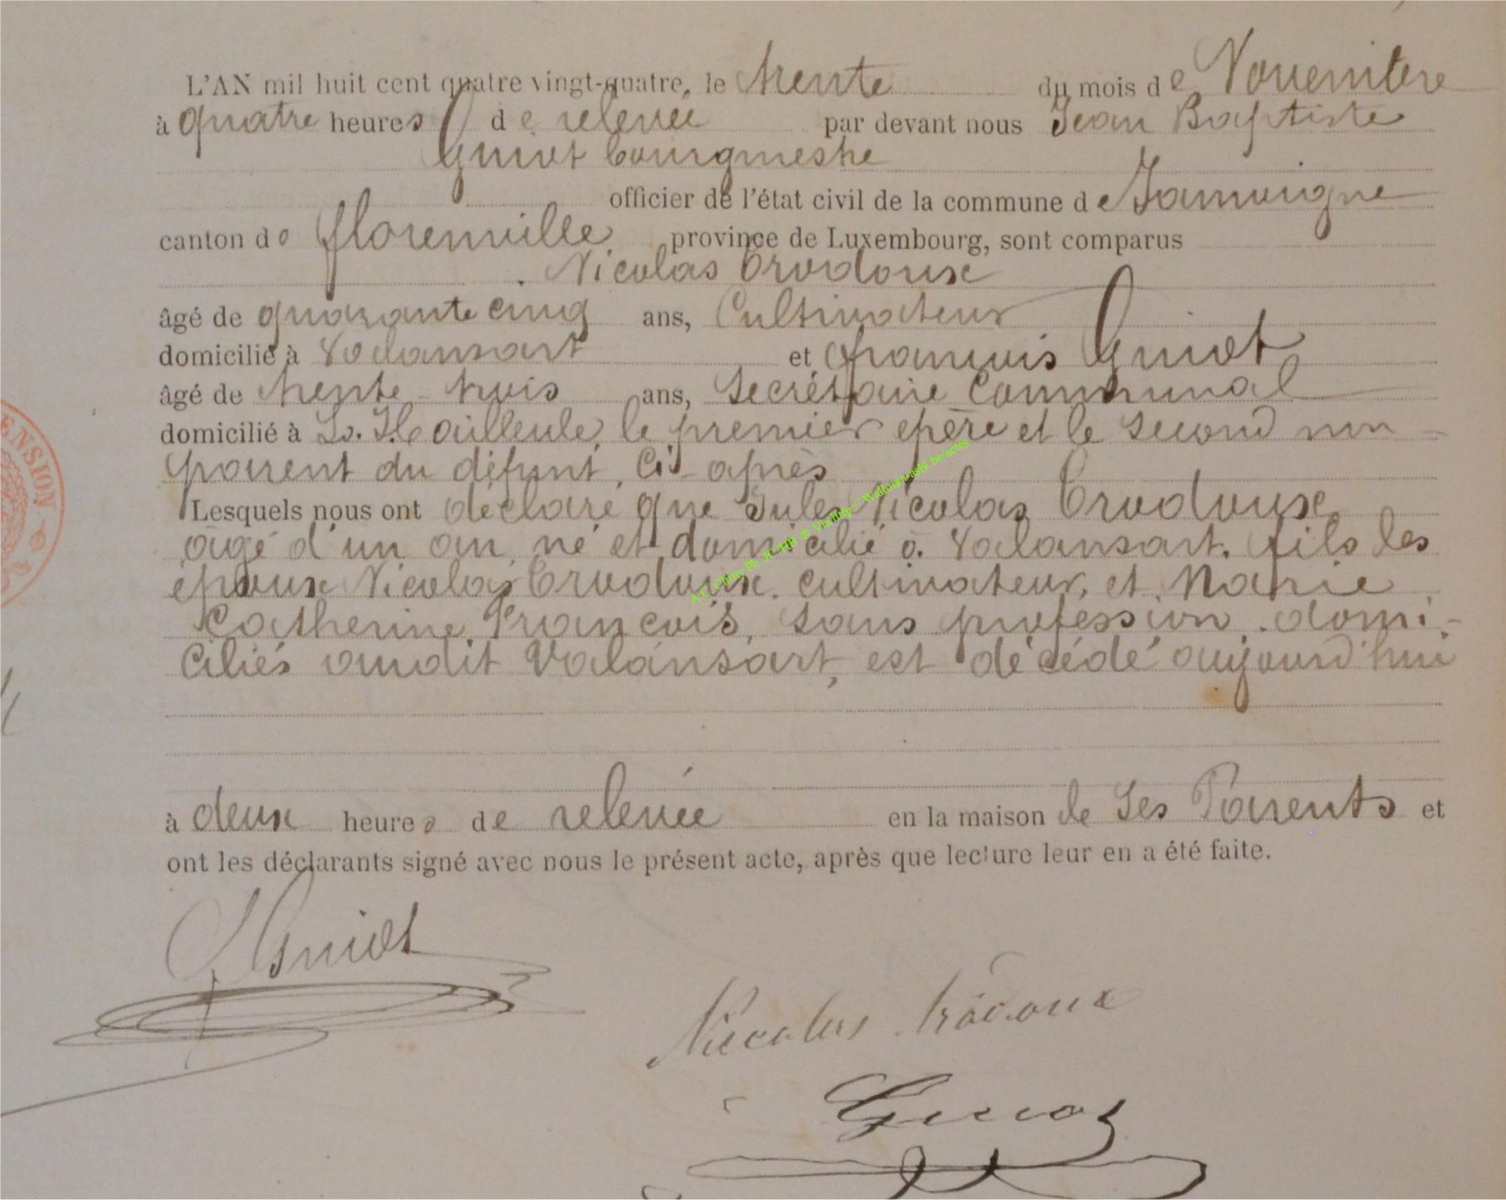 L'AN mil huit cent quatre vingt-quatre, le trente du mois de Novembre
à quatre heures de relevée par devant nous Jean Baptiste
Guiot bourgmestre
officier de l'état civil de la commune de Jamoigne
canton de florenville province de Luxembourg, sont comparus
Nicolas Crodoux
âgé de quarante cinq ans, Cultivateur
domicilié à Valansart et françois Guiot
âgé de trente-trois ans, Secrétaire Communal
domicilié à le premier père et le second non
parent du défunt, ci-après
Lesquels nous ont déclaré que Jules Nicolas Crodoux
agé d'un an, né et domicilié à Valansart, fils des
époux Nicolas Crodoux, cultivateur, et Marie
Catherine François, sans profession, domi-
ciliés audit Valansart, est décédé aujourd'hui
à deux heures de relevée en la maison de ses Parents et
ont les déclarants signé avec nous le présent acte, après que lecture leur en a été faite.
Guiot
Nicolas
Guiot
ENSION